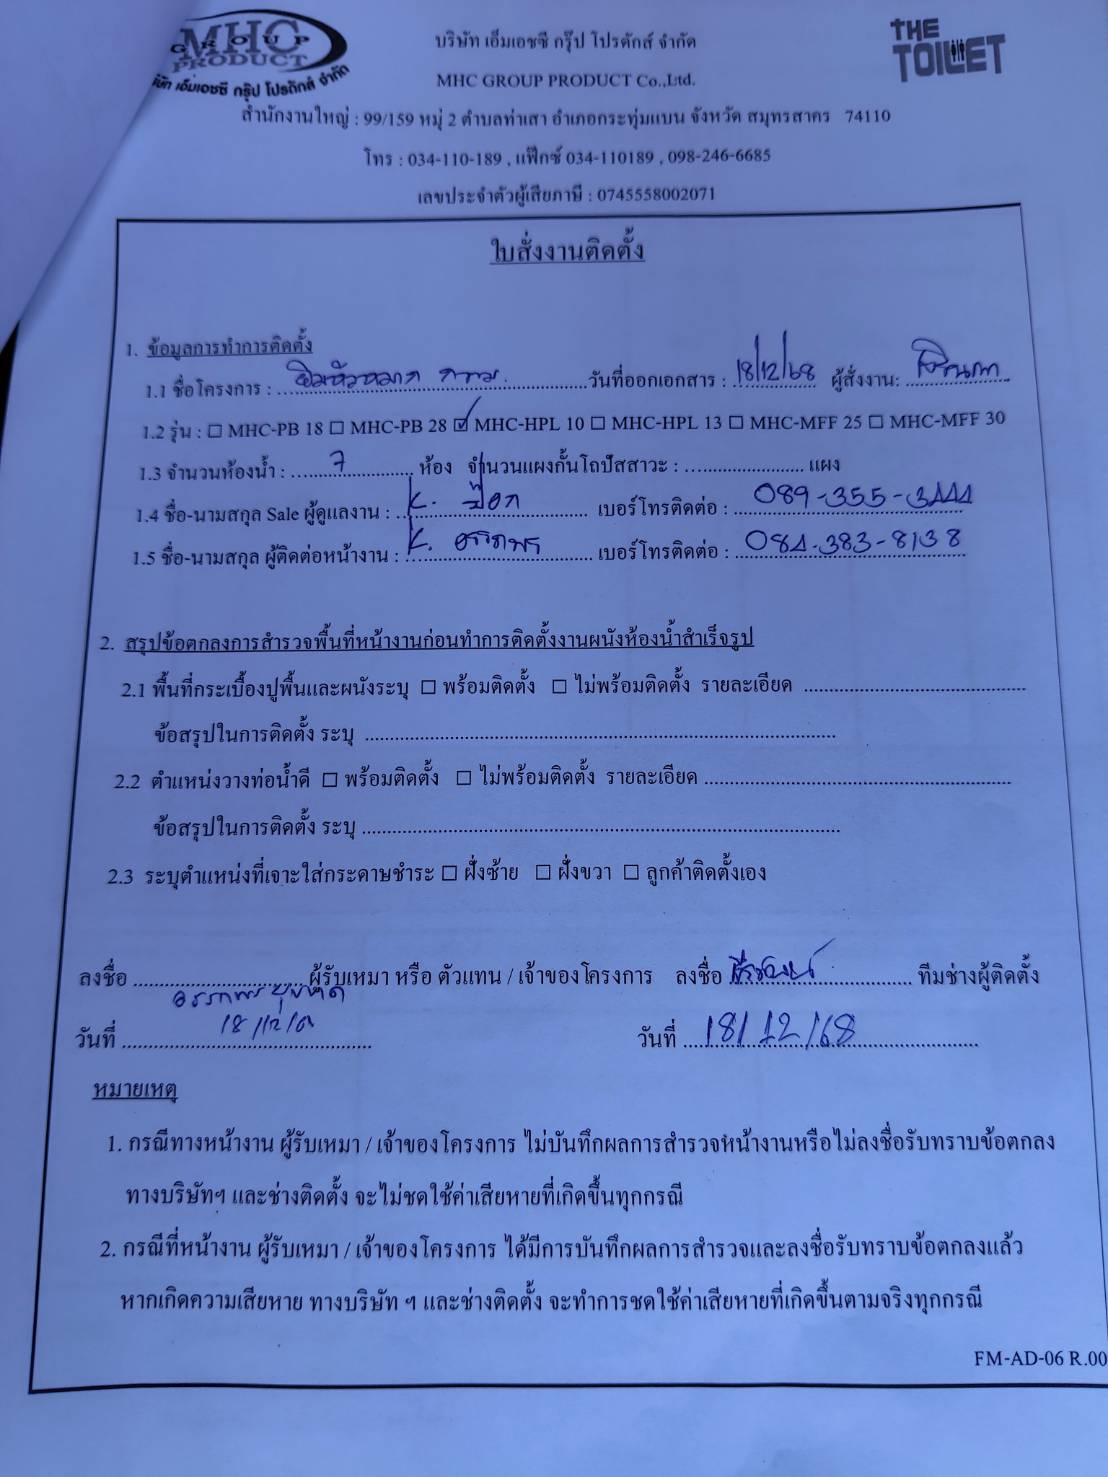 MHC
GROUP
PRODUCT
บริษัท เอ็มเอชซี กรุ๊ป โปรดักส์ จำกัด
THE
TOILET
บริษัท เอ็มเอชซี กรุ๊ป โปรดักส์ จำกัด
MHC GROUP PRODUCT Co.,Ltd.
สำนักงานใหญ่ : 99/159 หมู่ 2 ตำบลท่าเสา อำเภอกระทุ่มแบน จังหวัด สมุทรสาคร 74110
โทร : 034-110-189 , แฟ๊กซ์ 034-110189 , 098-246-6685
เลขประจำตัวผู้เสียภาษี : 0745558002071
ใบสั่งงานติดตั้ง
1. ข้อมูลการทำการติดตั้ง
1.1 ชื่อโครงการ : วันที่ออกเอกสาร : 18/12/68 ผู้สั่งงาน:
1.2 รุ่น : ☐ MHC-PB 18 ☐ MHC-PB 28 ☑ MHC-HPL 10 ☐ MHC-HPL 13 ☐ MHC-MFF 25 ☐ MHC-MFF 30
1.3 จำนวนห้องน้ำ : 7 ห้อง จำนวนแผงกั้นโถปัสสาวะ : แผง
1.4 ชื่อ-นามสกุล Sale ผู้ดูแลงาน : K. เบอร์โทรติดต่อ : 089-355-3444
1.5 ชื่อ-นามสกุล ผู้ติดต่อหน้างาน : K. อรรถพร เบอร์โทรติดต่อ : 084-383-8138
2. สรุปข้อตกลงการสำรวจพื้นที่หน้างานก่อนทำการติดตั้งงานผนังห้องน้ำสำเร็จรูป
2.1 พื้นที่กระเบื้องปูพื้นและผนังระบุ ☐ พร้อมติดตั้ง ☐ ไม่พร้อมติดตั้ง รายละเอียด
ข้อสรุปในการติดตั้ง ระบุ
2.2 ตำแหน่งวางท่อน้ำดี ☐ พร้อมติดตั้ง ☐ ไม่พร้อมติดตั้ง รายละเอียด
ข้อสรุปในการติดตั้ง ระบุ
2.3 ระบุตำแหน่งที่เจาะใส่กระดาษชำระ ☐ ฝั่งซ้าย ☐ ฝั่งขวา ☐ ลูกค้าติดตั้งเอง
ลงชื่อ ผู้รับเหมา หรือ ตัวแทน / เจ้าของโครงการ ลงชื่อ ทีมช่างผู้ติดตั้ง
อรรถพร
วันที่ 18/12/68 วันที่ 18/12/68
หมายเหตุ
1. กรณีทางหน้างาน ผู้รับเหมา / เจ้าของโครงการ ไม่บันทึกผลการสำรวจหน้างานหรือไม่ลงชื่อรับทราบข้อตกลง
ทางบริษัทฯ และช่างติดตั้ง จะไม่ชดใช้ค่าเสียหายที่เกิดขึ้นทุกกรณี
2. กรณีที่หน้างาน ผู้รับเหมา / เจ้าของโครงการ ได้มีการบันทึกผลการสำรวจและลงชื่อรับทราบข้อตกลงแล้ว
หากเกิดความเสียหาย ทางบริษัท ฯ และช่างติดตั้ง จะทำการชดใช้ค่าเสียหายที่เกิดขึ้นตามจริงทุกกรณี
FM-AD-06 R.00